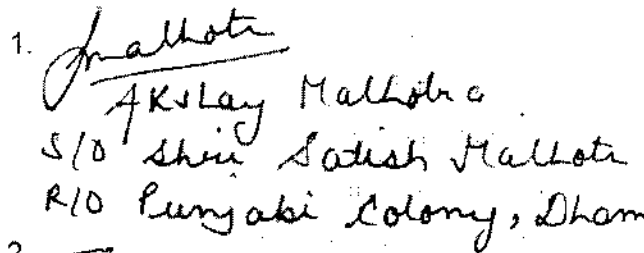 1. Jmalhotr
Akshay Malhotra
S/O Shri Satish Malhotr
R/O Punjabi Colony, Dham
2.